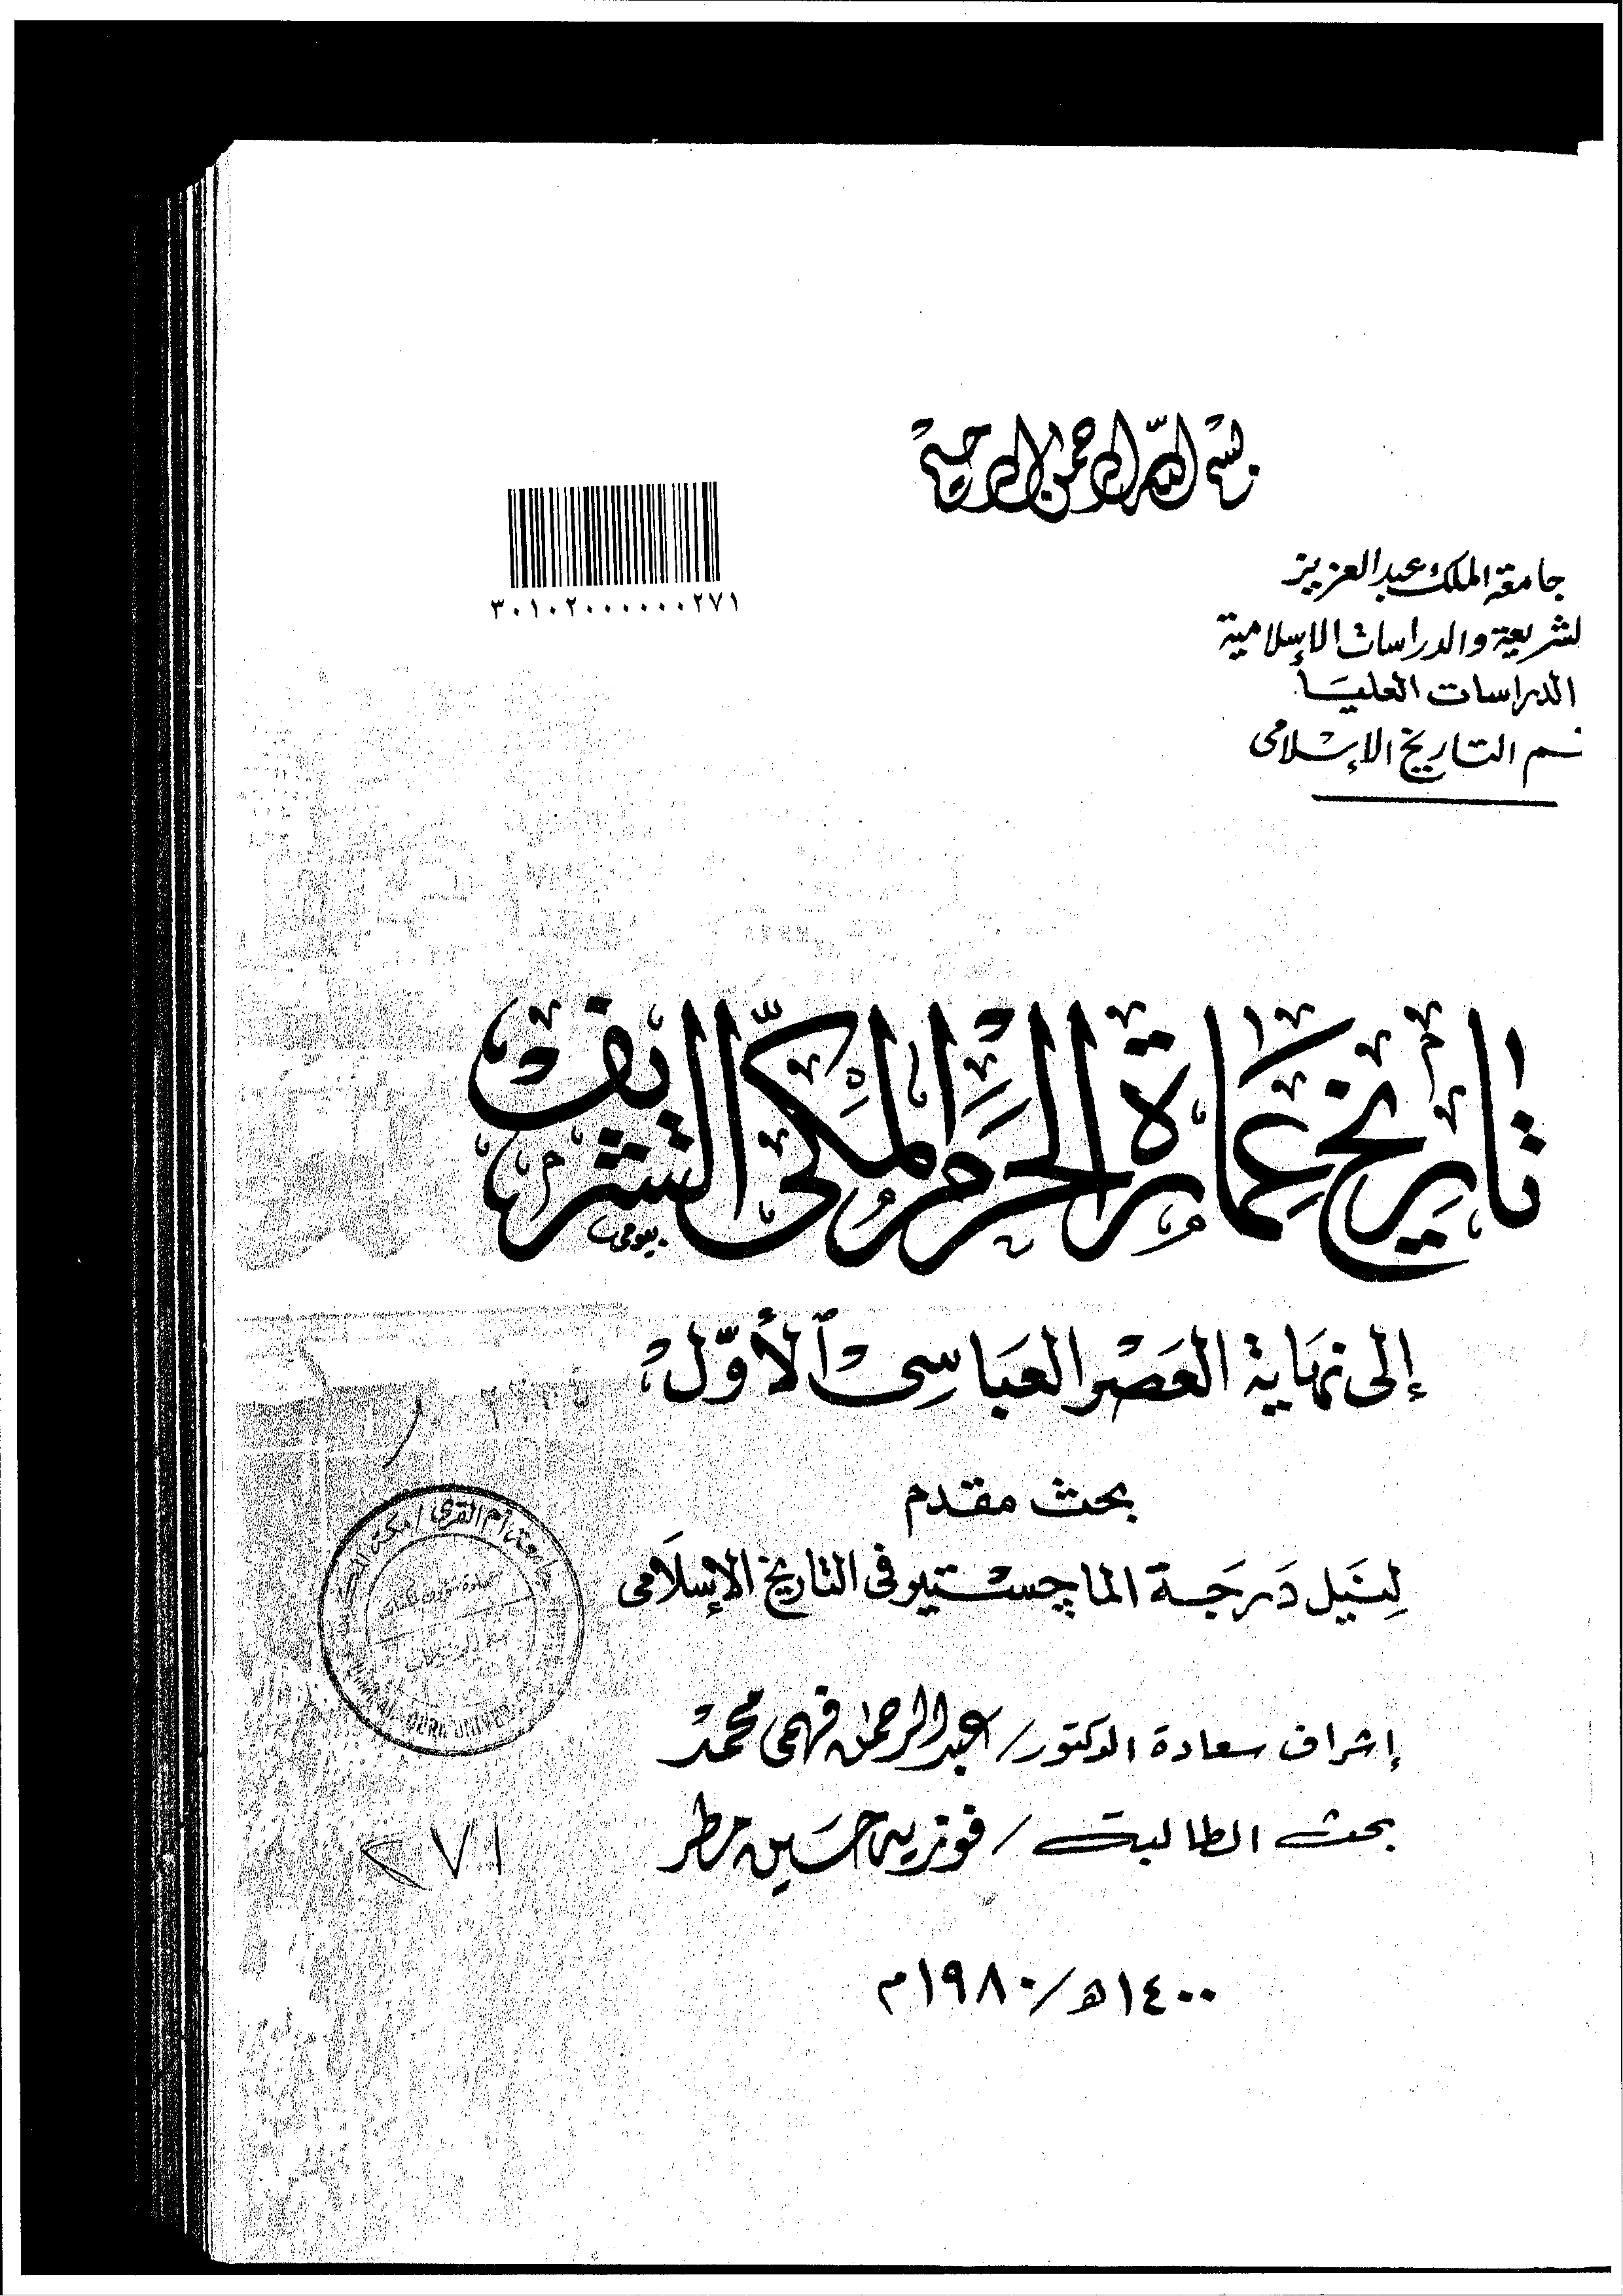 بسم الله الرحمن الرحيم
٣٠١٠٢٠٠٠٠٠٠٢٧١
جامعة الملك عبد العزيز
لشريعة والدراسات الإسلامية
الدراسات العليا
سم التاريخ الإسلامى
تاريخ عمارة الحرم المكى الشريف
بيومى
إلى نهاية العصر العباسى الأول
بحث مقدم
لنيل درجة الماجستير فى التاريخ الإسلامى
جامعة أم القرى / مكة
إشراف سعادة الدكتور / عبد الرحمن فهمى محمد
بحث الطالبة / فوزية حسين مطر
٢٧١
١٤٠٠هـ / ١٩٨٠م